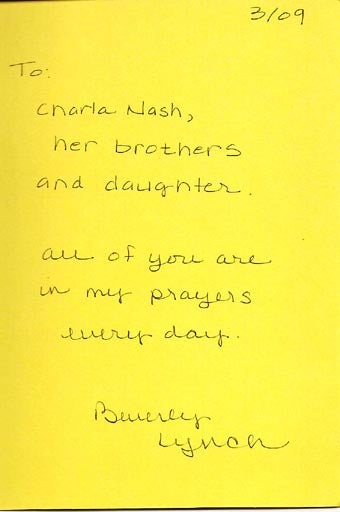 3/09
To:
Charla Nash,
her brothers
and daughter.
all of you are
in my prayers
every day.
Beverly
Lynch